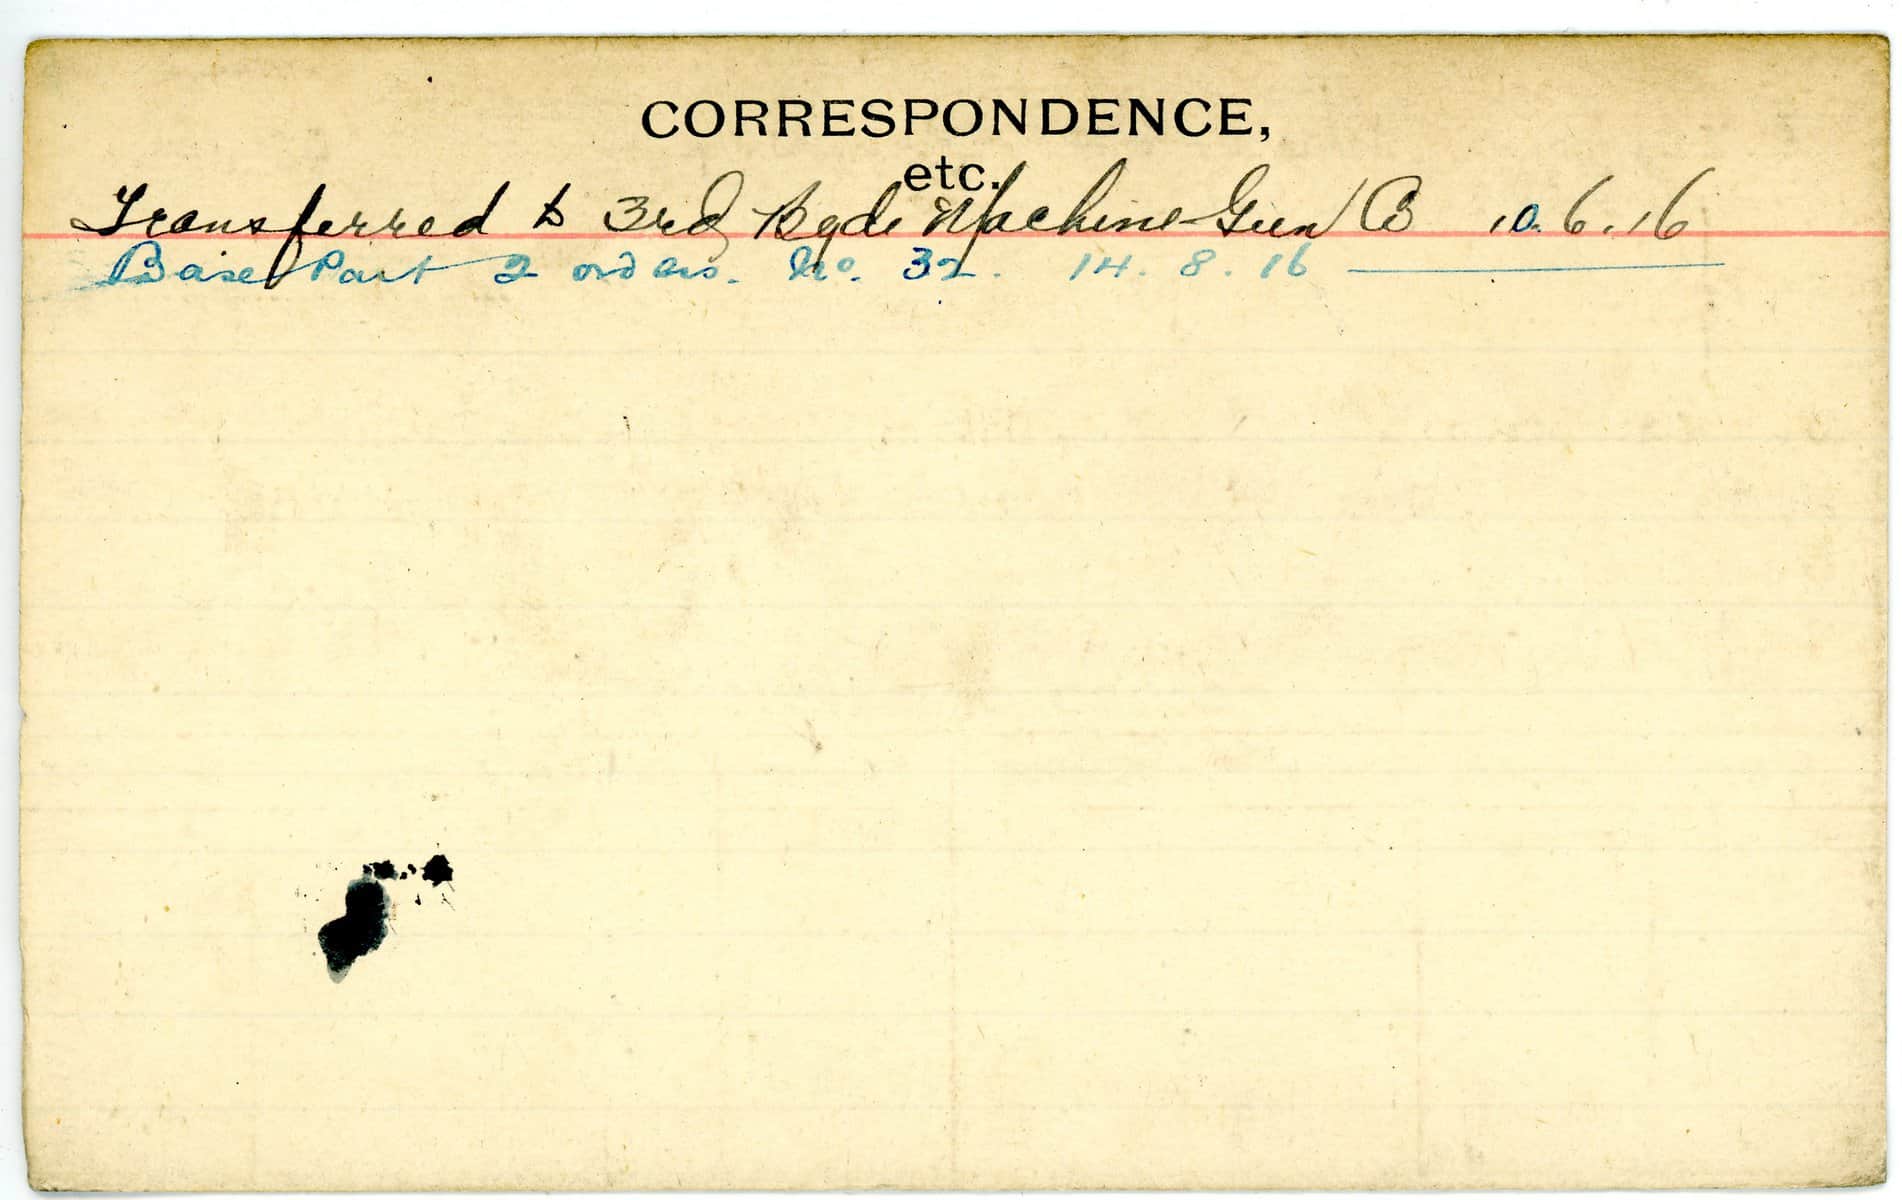 CORRESPONDENCE,
etc.
Transferred to 3rd Bgde Machine Gun Co 10.6.16
Base Part 2 orders. No. 32. 14.8.16